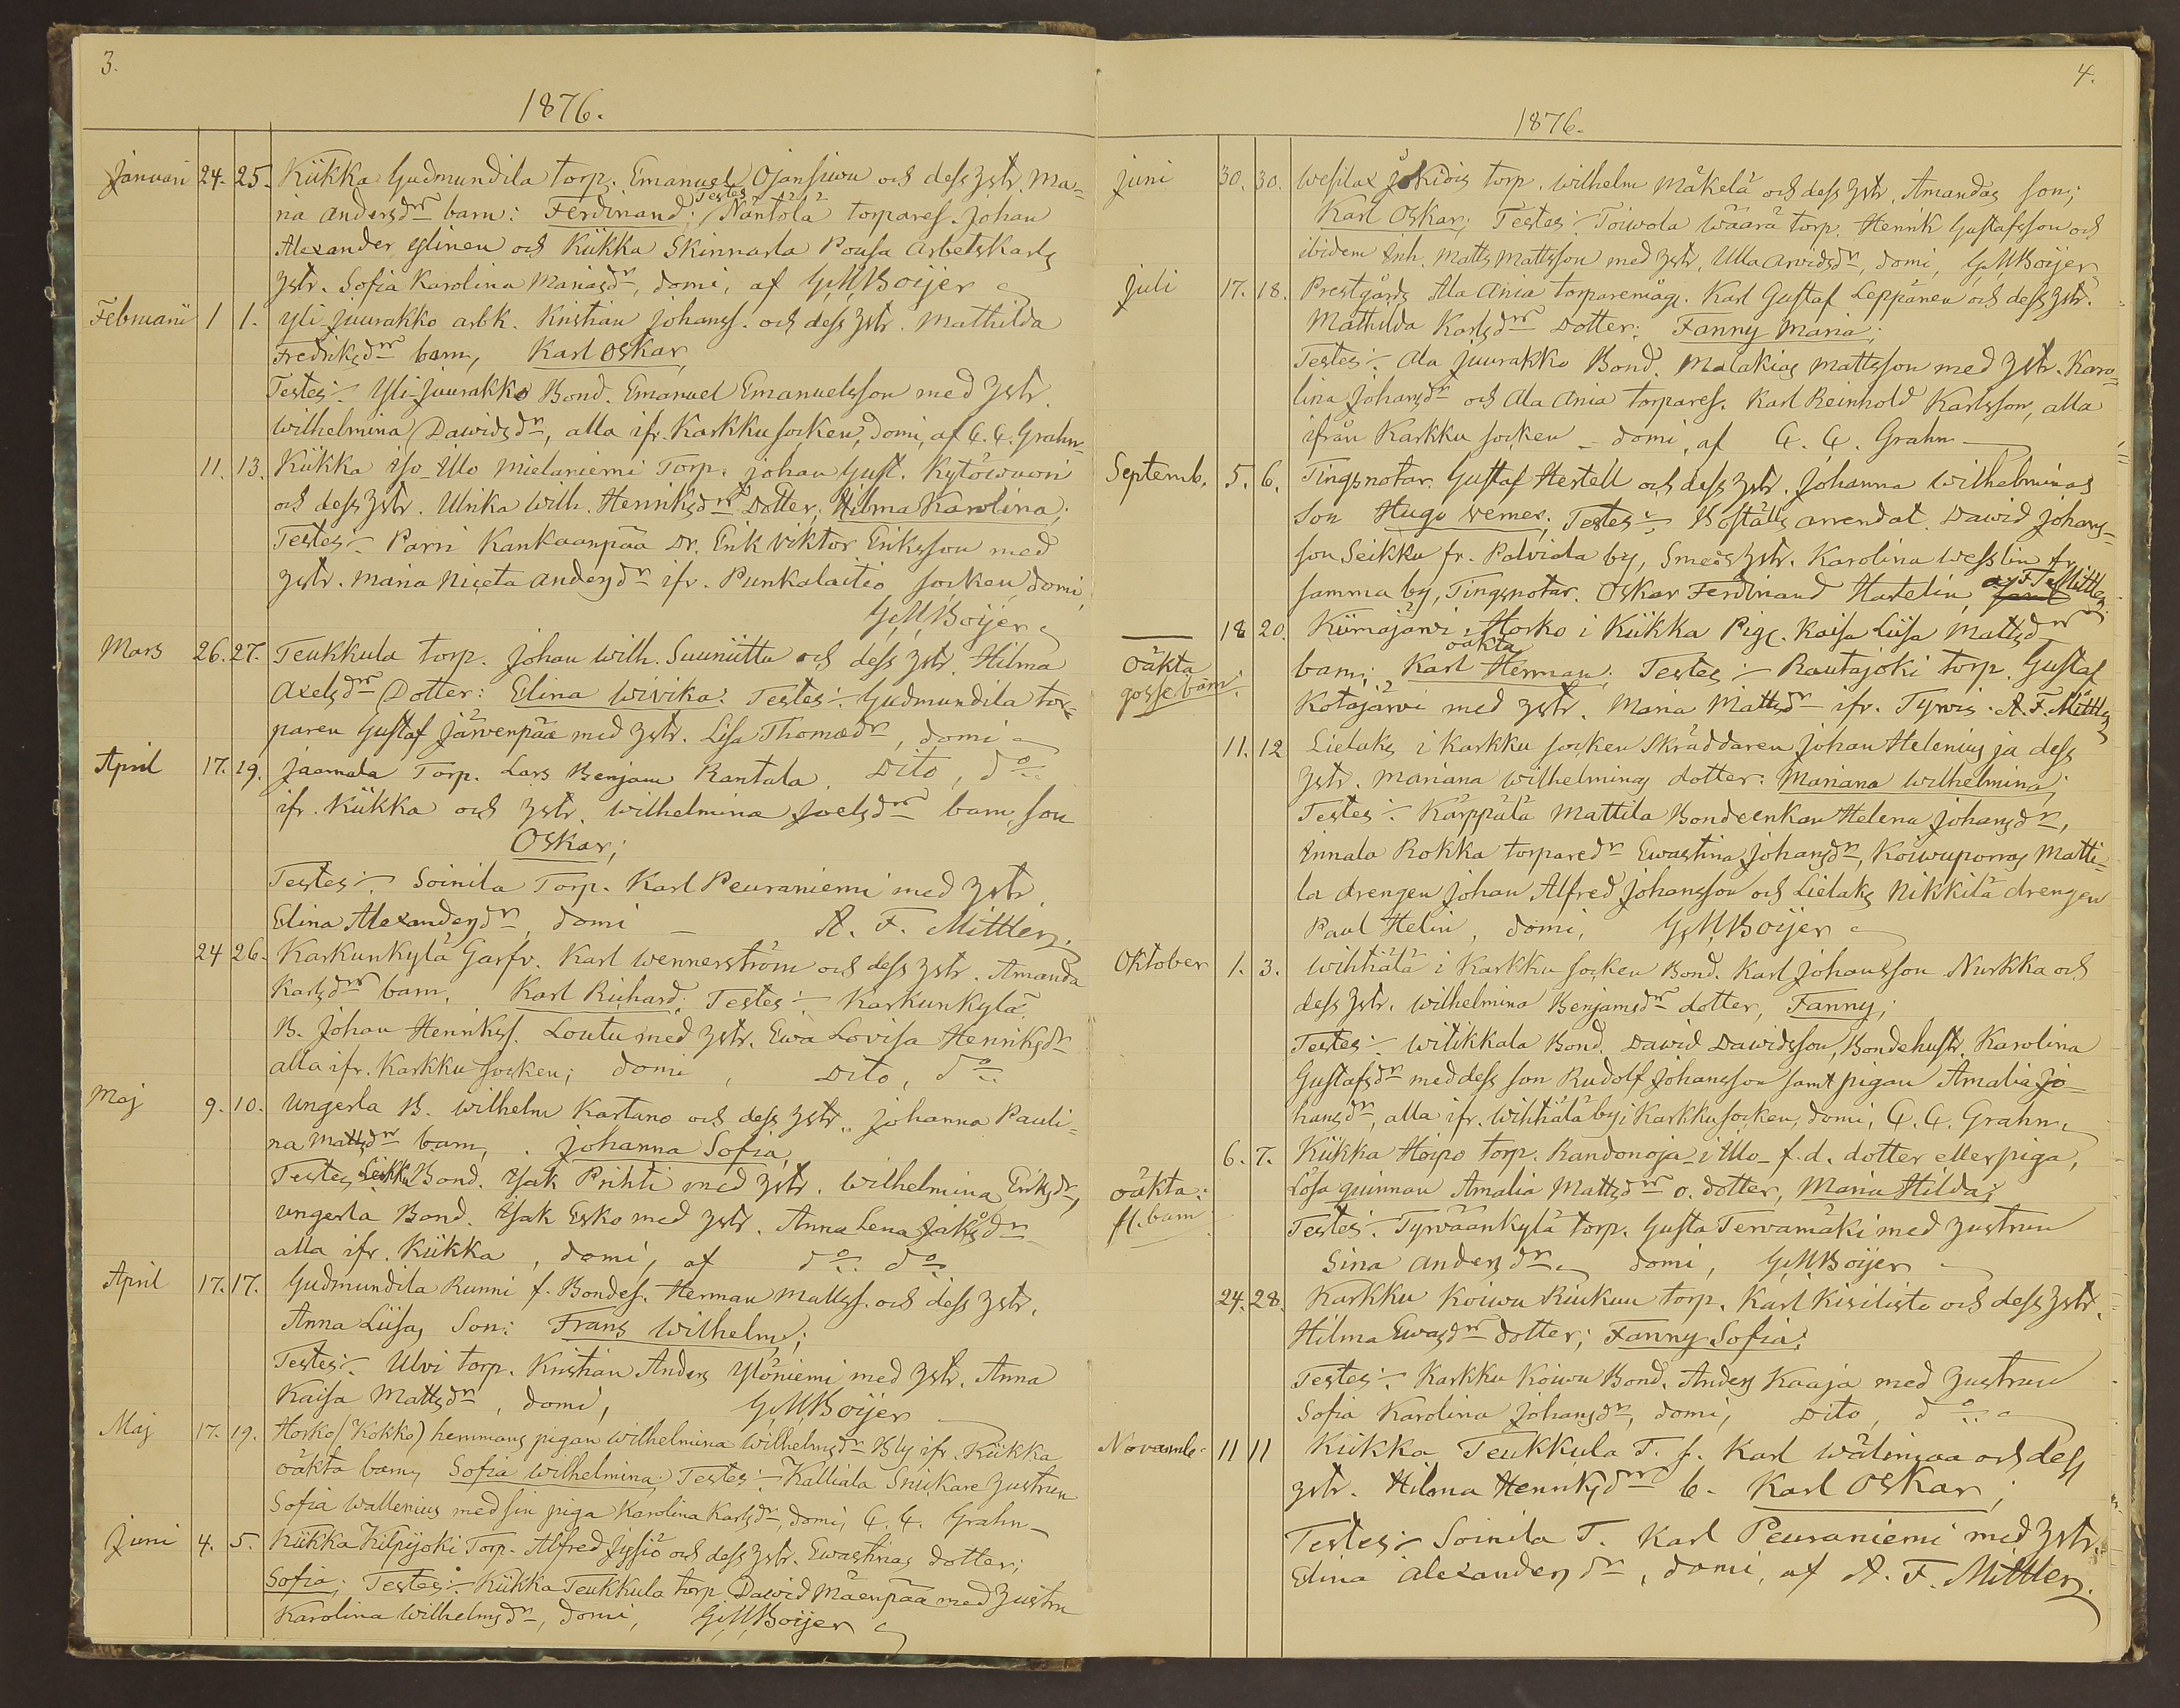 3.
1876.
Januari 24. 25. Kiikka Gudmundila torp. Emanuel Ojansiwu och dess hstr. Ma=
ria Andersdr barn: Ferdinand; Testes Näntölä torpares. Johan
Alexander Ylinen och Kiikka Skinnarla Pousa Arbetskarls
hstr. Sofia Karolina Mariasdr, domi, af G.M.Boijer
Februarii 1 1. Yli juurakko arbk. Kristian Johanss. och dess hstr. Mathilda
Fredriksdr barn, Karl Oskar,
Testes:- Yli-Juurakko Bond. Emanuel Emanuelsson med hstr.
Wilhelmina Dawidsdr, alla ifr. Karkku socken, domi, af C. C. Grahn-
11. 13. Kiikka Iso-Ulo Mielaniemi Torp. Johan Gust. Kytöwuori
och dess hstr. Ulrika Wilh. Henriksdr Dotter, Hilma Karolina;
Testes:- Parri Kankaanpää Dr. Erik Viktor Eriksson med
hstr. Maria Niceta Andersdr ifr. Punkalaitio socken, domi,
G.M.Boijer
Mars 26. 27. Teukkula torp. Johan Wilh. Suuniittu och dess hstr. Hilma
Axelsdr Dotter: Elina Wivika: Testes:- Gudmundila tor=
paren Gustaf Järvenpää med hstr. Lisa Thomædr, domi
April 17. 19. Jaamala Torp. Lars Benjam Rantala. Dito, do
ifr. Kiikka och hstr. Wilhelmina Joelsdr barn, son
Oskar;
Testes:- Soinila Torp. Karl Peuraniemi med hstr.
Elina Alexandersdr, domi - A. F. Mittler.
24 26. Karkunkylä Garfv. Karl Wennerström och dess hstr. Amanda
Karlsdr barn, Karl Richard; Testes:- Karkunkylä
B. Johan Henrikss. Loutu med hstr. Ewa Lovisa Henriksdr
alla ifr. Karkku socken; domi, Dito, do
Maj 9. 10. Ungerla B. Wilhelm Kartano och dess hstr. Johanna Pauli=
na Mattsdr barn, Johanna Sofia,
Testes Leikku Bond. Isak Prihti med hstr. Wilhelmina Eriksdr,
Ungerla Bond. Isak Esko med hstr. Anna Lena Jaksdr
alla ifr. Kiikka, domi, af do do
April 17. 17. Gudmundila Runni f. Bondes. Herman Mattss. och dess hstr.
Anna Liisas Son: Frans Wilhelm;
Testes:- Ulvi torp. Kristian Anders Ylöniemi med hstr. Anna
Kaisa Mattsdr, domi, G.M.Boijer
Maj 17. 19. Horko (Kokko) hemmans pigan Wilhelmina Wilhelmsdr Bly ifr. Kiikka
oäkta barn, Sofia Wilhelmina; Testes:- Kalliala Snickare hustrun
Sofia Wallenius med sin piga Karolina Karlsdr, domi, C. C. Grahn-
Juni 4. 5. Kiikka Kilpijoki Torp. Alfred Jysiö och dess hstr. Ewastinas dotter;
Sofia; Testes:- Kiikka Teukkula torp Dawid Mäenpää med hustru
Karolina Wilhelmsdr, domi, G.M.Boijer
4.
1876.
Juni 30. 30. Wesilax Jokiois torp. Wilhelm Mäkelä och dess hstr. Amandas son;
Karl Oskar; Testes:- Toiwola Wäärä torp. Henrik Gustafsson och
ibidem Inh. Matts Mattsson med hstr. Ulla Arvidsdr, domi, G.M.Boijer
Juli 17. 18. Prestgårds Ala Ania torparemåg. Karl Gustaf Leppänen och dess hstr.
Mathilda Karlsdr Dotter: Fanny Maria;
Testes:- Ala Juurakko Bond. Malakias Mattsson med hstr. Karo=
lina Johansdr och Ala Ania torpares. Karl Reinhold Karlsson, alla
ifrån Karkku socken - domi, af C. C. Grahn-
Septemb. 5. 6. Tingsnotar. Gustaf Hestell och dess hstr. Johanna Wilhelminas
Son Hugo Verner; Testes:- Boställs arrendat. Dawid Johans=
son Seikku fr. Palviala by, Smeds hstr. Karolina Wesslin fr.
samma by, Tingsnotar. Oskar Ferdinand Hartelin, af A. F. Mittler.
18 20. Kiimajärwi, Horko i Kiikka Pigl. Kaisa Liisa Mattsdr
oäkta
oäkta barn; Karl Herman; Testes:- Rautajoki torp. Gustaf
gossebarn. Kotajärvi med hstr. Maria Mattsdr ifr. Tyrvis. A. F. Mittler
11. 12 Lielaks i Karkku socken Skräddaren Johan Helenius ja dess
hstr. Mariana Wilhelminas dotter: Mariana Wilhelmina;
Testes:- Käppälä Mattila Bondeenkan Helena Johansdr,
Innala Rokka torparedr Ewastina Johansdr, Koiwuporras Matti=
la drengen Johan Alfred Johansson och Lielaks Nikkilä drengen
Paul Helin, domi, G.M.Boijer
Oktober 1. 3. Wihtiälä i Karkku socken Bond. Karl Johansson Nurkka och
dess hstr. Wilhelmina Benjamsdr dotter, Fanny;
Testes:- Witikkala Bond. Dawid Dawidsson, Bondehustr. Karolina
Gustafsdr med dess son Rudolf Johansson samt pigan Amalia Jo=
hansdr, alla ifr. Wihtiälä by i Karkku socken, domi, C. C. Grahn.
6. 7. Kiikka Hoipo torp. Randonoja i Ulo f.d. dotter eller piga,
oäkta: lösa quinnan Amalia Mattsdr o. dotter, Maria Hilda;
fl.barn Testes:- Tyrvään­kylä torp. Gusta Tervamäki med hustrun
Sina Andersdr domi, G.M.Boijer
24. 28. Karkku Koiwu Riukuu torp. Karl Kisilisto och dess hstr.
Hilma Ewasdr dotter; Fanny Sofia:
Testes:- Karkku Koiwu Bond. Anders Kaaja med hustrun
Sofia Karolina Johansdr, domi, Dito, do
Novemb. 11 11 Kiikka Teukkula T. s. Karl Wälimaa och dess
hstr. Hilma Henriksdr b. Karl Oskar;
Testes:- Soinila T. Karl Peuraniemi med hstr.
Elina Alexandersdr, domi, af A. F. Mittler.